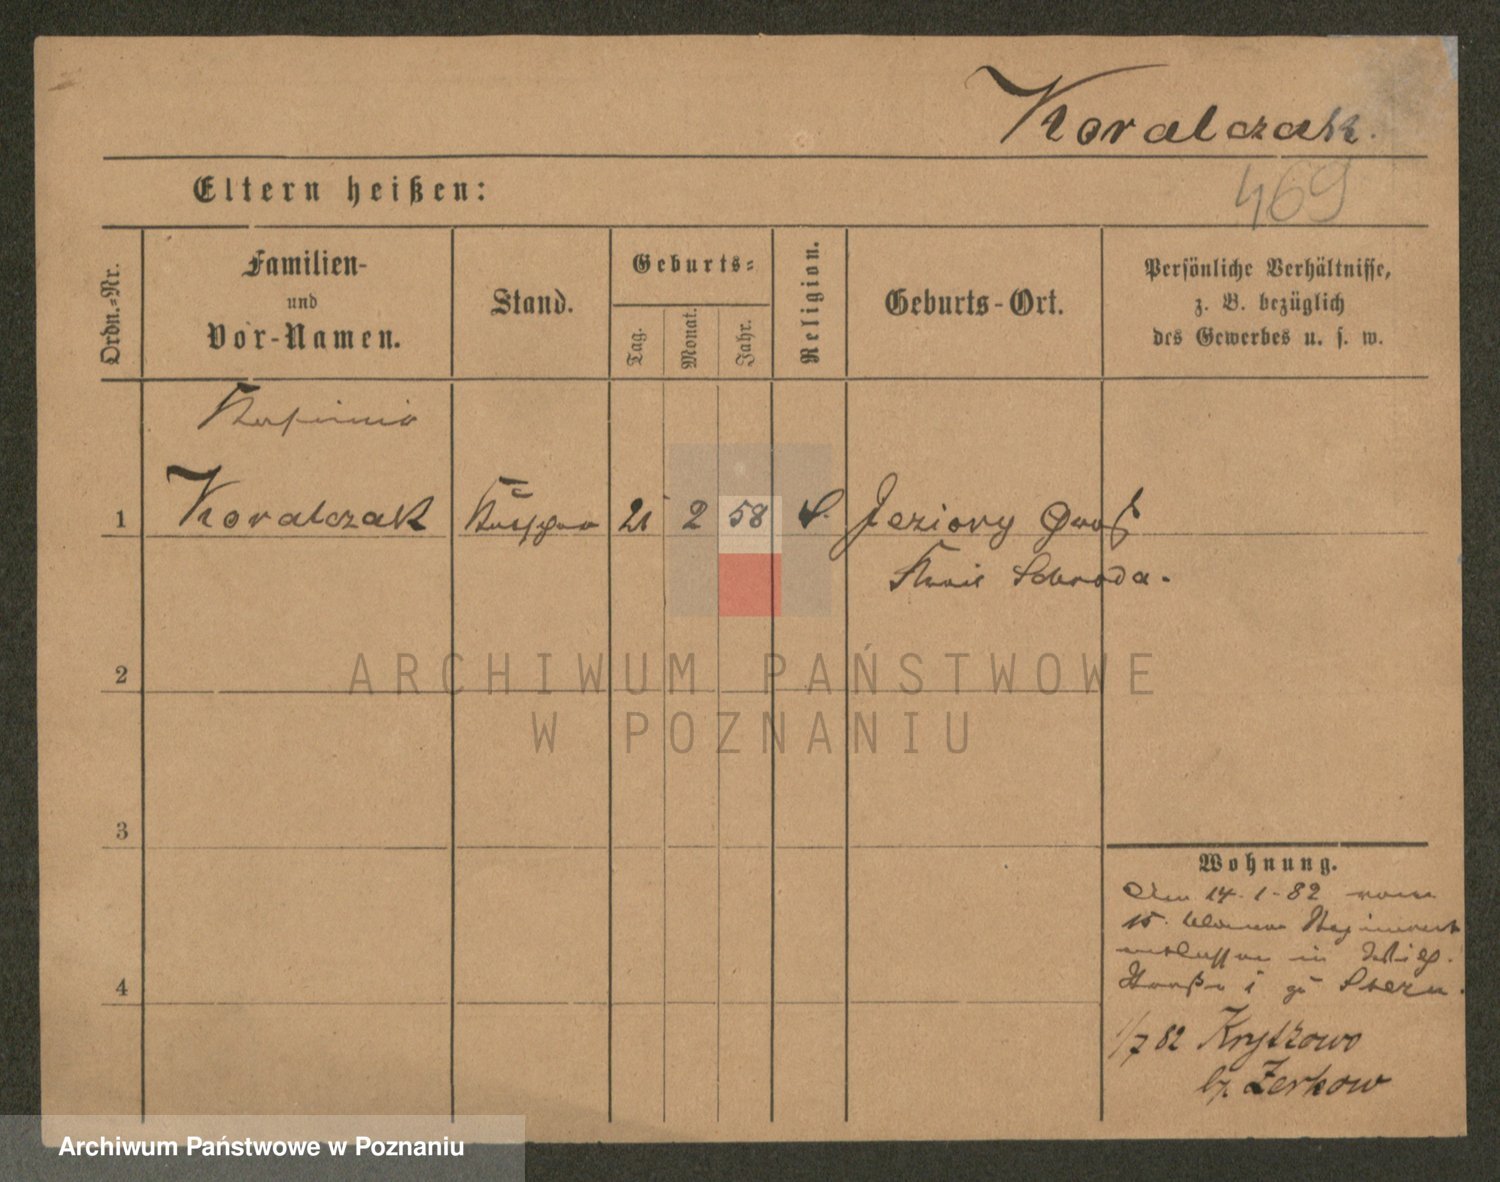 Koralczak.
469
Eltern heißen:
Ordn.-Nr.
Familien-
und
Vor-Namen.
Stand.
Geburts-
Tag.
Monat.
Jahr.
Religion.
Geburts-Ort.
Persönliche Verhältnisse,
z. B. bezüglich
des Gewerbes u. s. w.
1
Koralczak
21 2 58
Jeziory Groß
Kreis Schroda.
2
3
4
ARCHIWUM PAŃSTWOWE
W POZNANIU
Wohnung.
Am 14.1.82 vom
15. Ulanen Regiment
entlassen in
Straße 1
1/7 82 Krytkowo
Zerkow
Archiwum Państwowe w Poznaniu